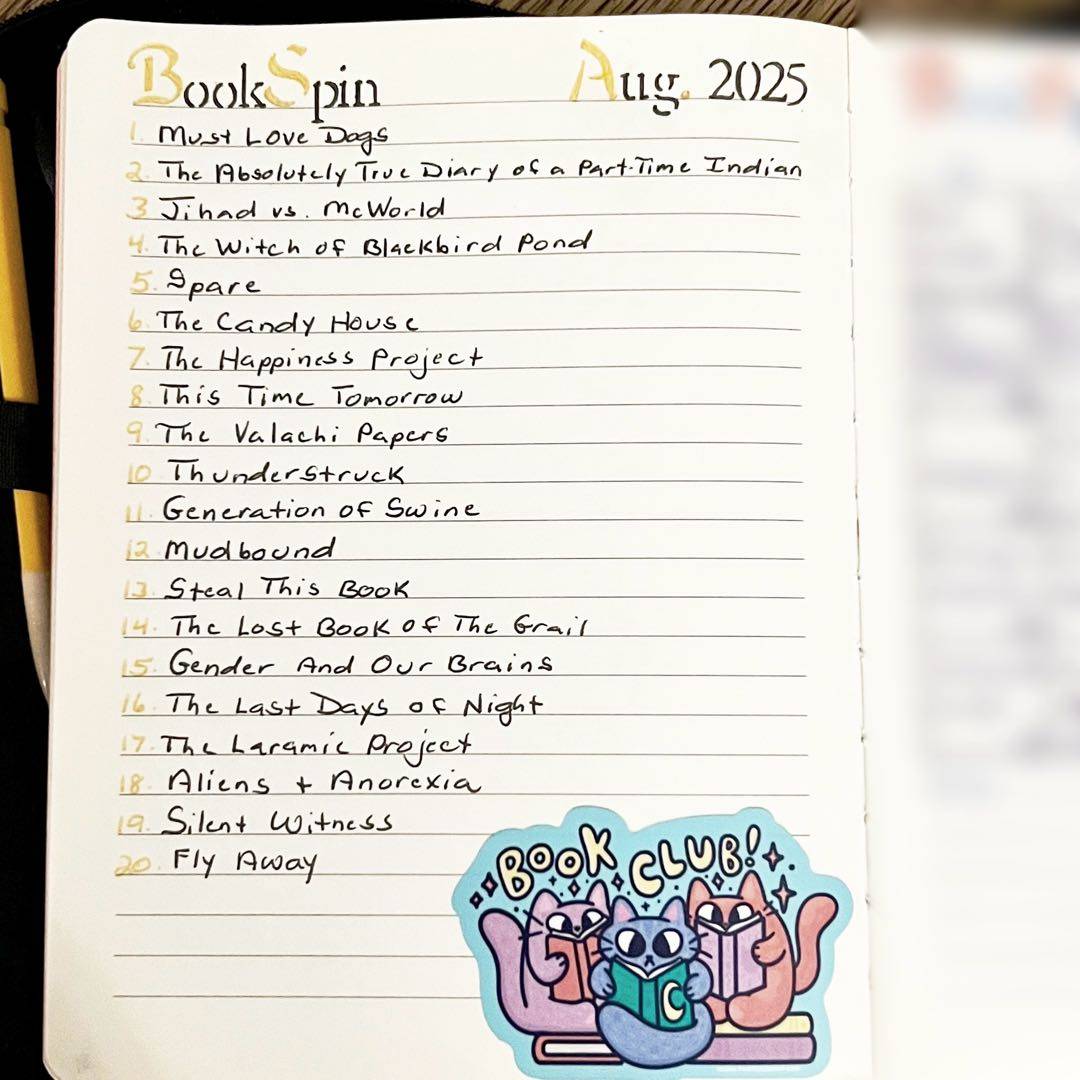 BookSpin Aug. 2025
1. Must Love Dogs
2. The Absolutely True Diary of a Part-Time Indian
3 Jihad vs. McWorld
4. The Witch of Blackbird Pond
5. Spare
6. The Candy House
7. The Happiness Project
8. This Time Tomorrow
9. The Valachi Papers
10 Thunderstruck
11. Generation of Swine
12. Mudbound
13. Steal This Book
14. The Lost Book of The Grail
15. Gender And Our Brains
16. The Last Days of Night
17. The Laramie Project
18. Aliens + Anorexia
19. Silent Witness
20. Fly Away
BOOK CLUB!